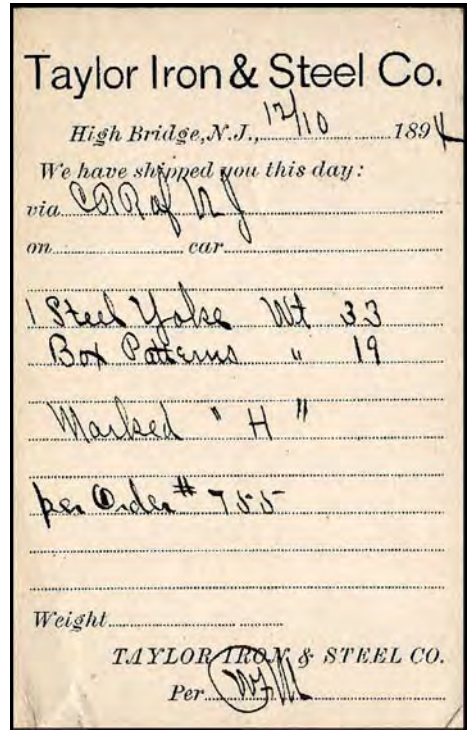 Taylor Iron & Steel Co.
High Bridge, N.J., 12/10 1894
We have shipped you this day:
via C R R of N J
on car
1 Steel Yoke Wt 33
Box Patterns " 19
Marked " H "
per Order # 755
Weight
TAYLOR IRON & STEEL CO.
Per